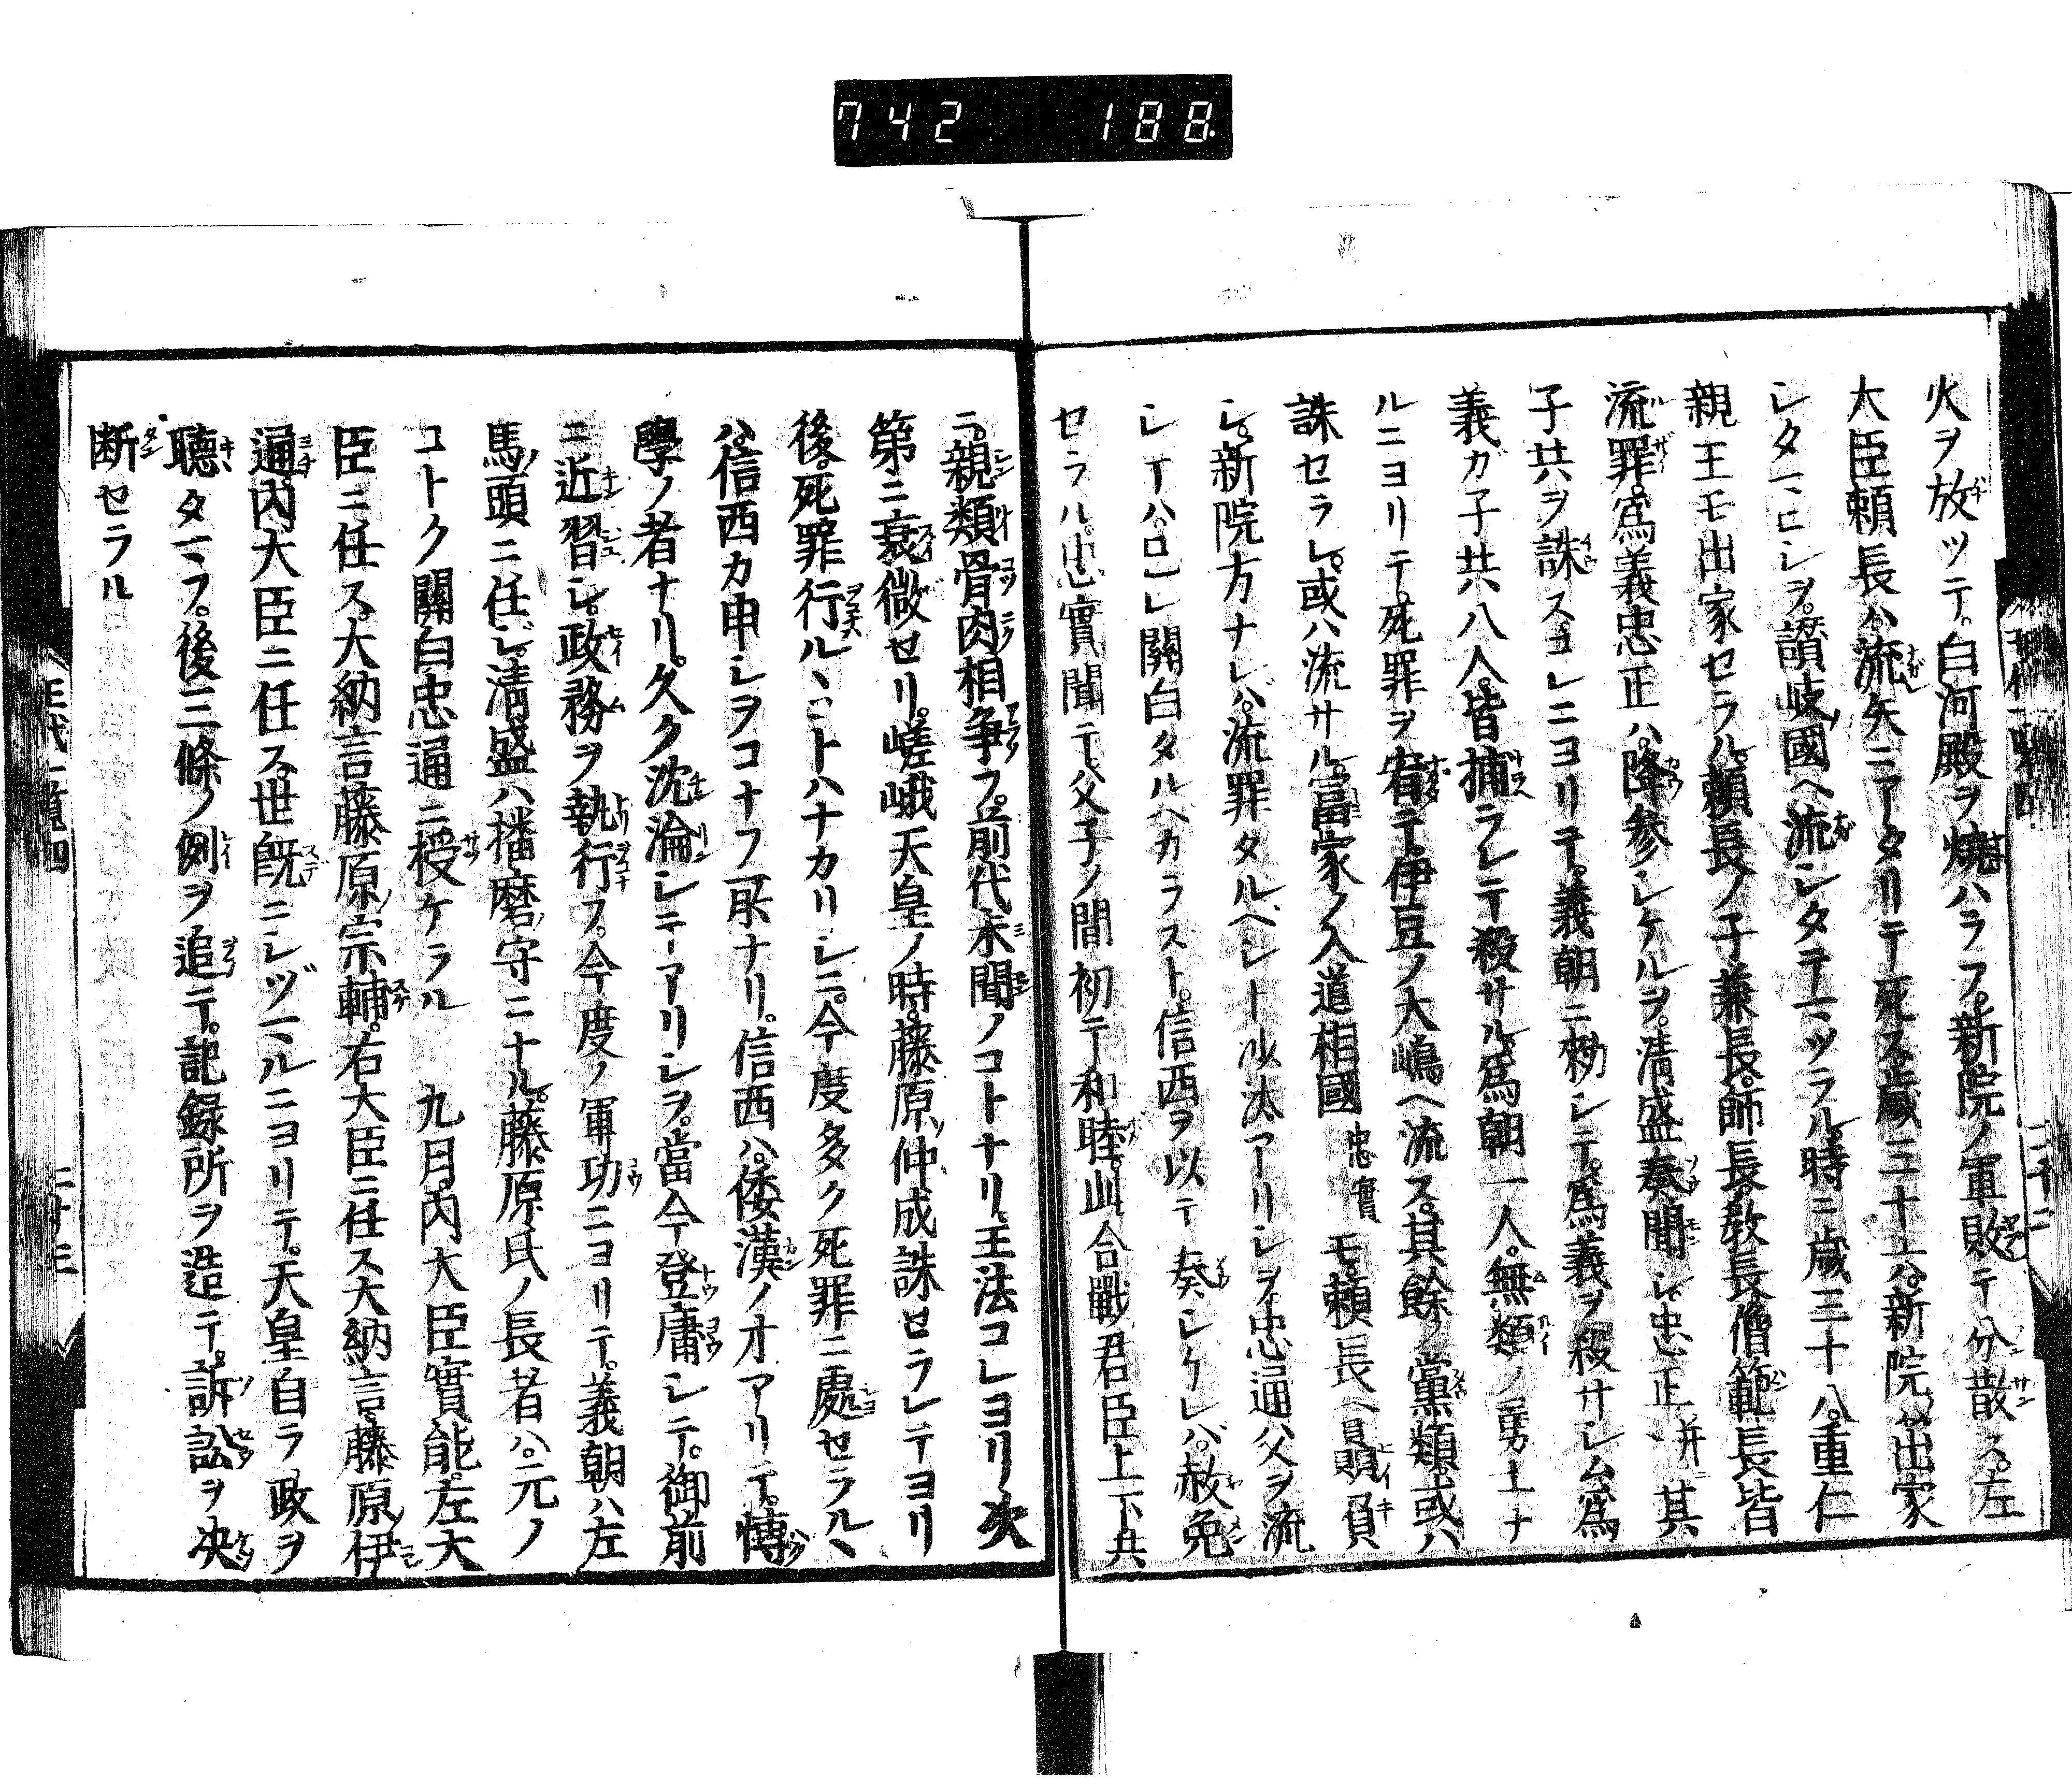 742 188
火ヲ放ツテ。白河殿ヲ燒ハラフ。新院ノ軍敗テ分散ス。左
大臣頼長ハ流矢ニアタリテ死ス歳三十六。新院ハ出家
シタマヒシヲ。讃岐國ヘ流シタテマツラル時ニ歳三十八。重仁
親王モ出家セラル。頼長ノ子兼長。師長。教長。僧範長皆
流罪。爲義忠正ハ。降參シケルヲ。清盛奏聞シ忠正并其
子共ヲ誅スコレニヨリテ。義朝ニ勑シテ。爲義ヲ殺サシム爲
義ガ子共八人。皆捕ラレテ殺サル。爲朝一人。無類ノ勇士ナ
ルニヨリテ。死罪ヲ宥テ。伊豆ノ大嶋ヘ流ス。其餘ノ黨類。或ハ
誅セラレ。或ハ流サル。富家ノ入道相國忠實モ。頼長ヘ贔負
シ。新院方ナレバ。流罪タルベシト沙汰アリシヲ。忠通父ヲ流
シテハ。ワレ關白タルヘカラスト。信西ヲ以テ奏シケレバ。赦免
セラル。忠實聞テ。父子ノ間初テ和睦。此合戰君臣上下共
ニ。親類骨肉相争フ。前代未聞ノコトナリ。王法コレヨリ次
第ニ衰微セリ。嵯峨天皇ノ時。藤原仲成誅セラレテヨリ
後。死罪行ルヽコトハナカリシニ。今度多ク死罪ニ處セラルヽ
ハ。信西カ申シヲコナフ所ナリ。信西ハ。倭漢ノオアリテ。博
學ノ者ナリ。久ク沈淪シテアリシヲ。當今登庸シテ。御前
ニ近習シ。政務ヲ執行フ。今度ノ軍功ニヨリテ。義朝ハ左
馬頭ニ任シ。清盛ハ播磨守ニナル。藤原氏ノ長者ハ。元ノ
コトク關白忠通ニ授ケラル 九月内大臣實能。左大
臣ニ任ス。大納言藤原宗輔。右大臣ニ任ス大納言。藤原伊
通。内大臣ニ任ス。世既ニシヅマルニヨリテ。天皇自ラ政ヲ
聽タマフ。後三條ノ例ヲ追テ。記録所ヲ造テ。訴訟ヲ决
断セラル